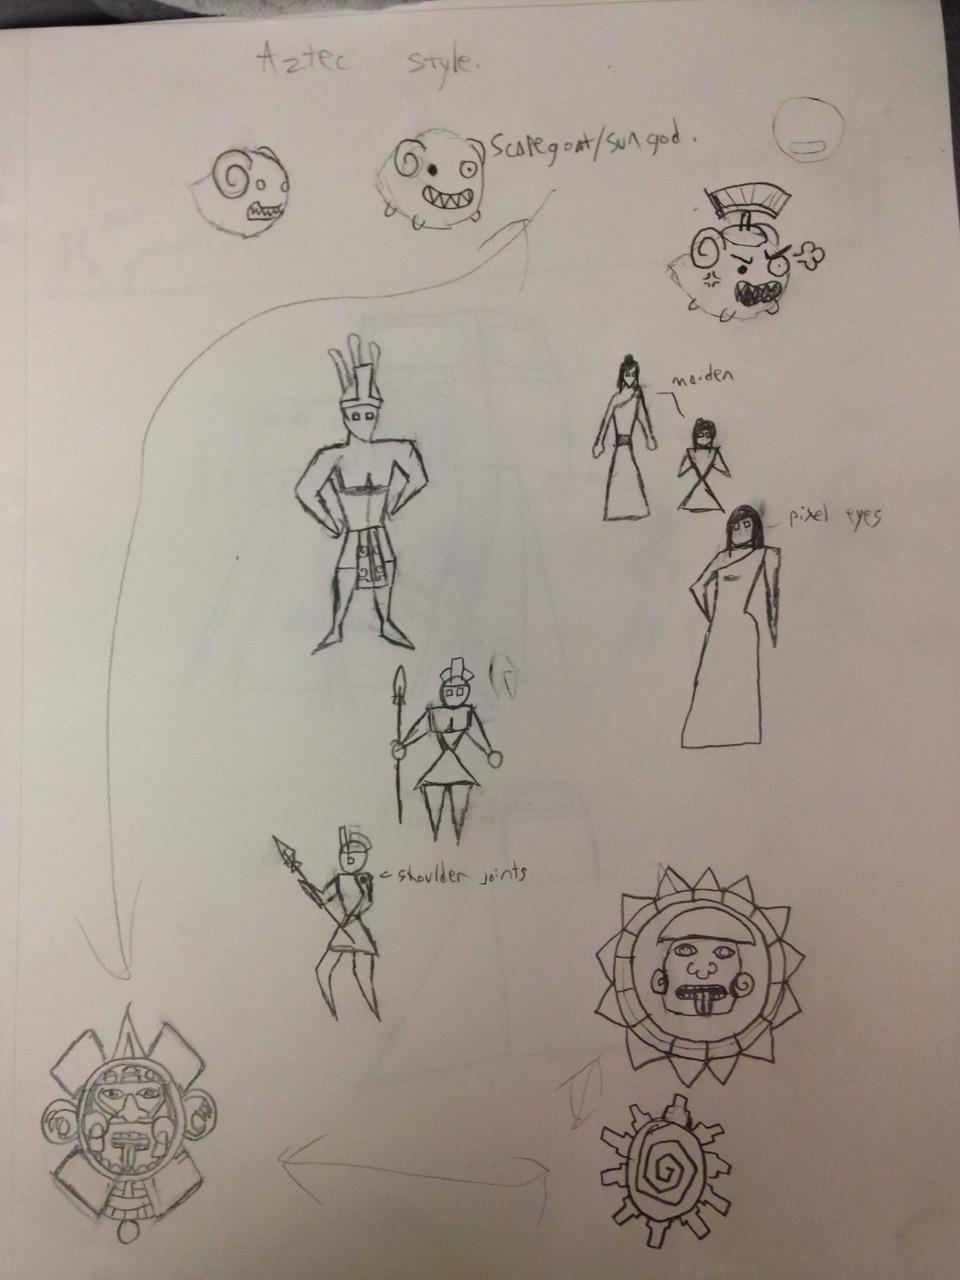 Aztec style.
Scapegoat/sun god.
maiden
pixel eyes
< shoulder joints